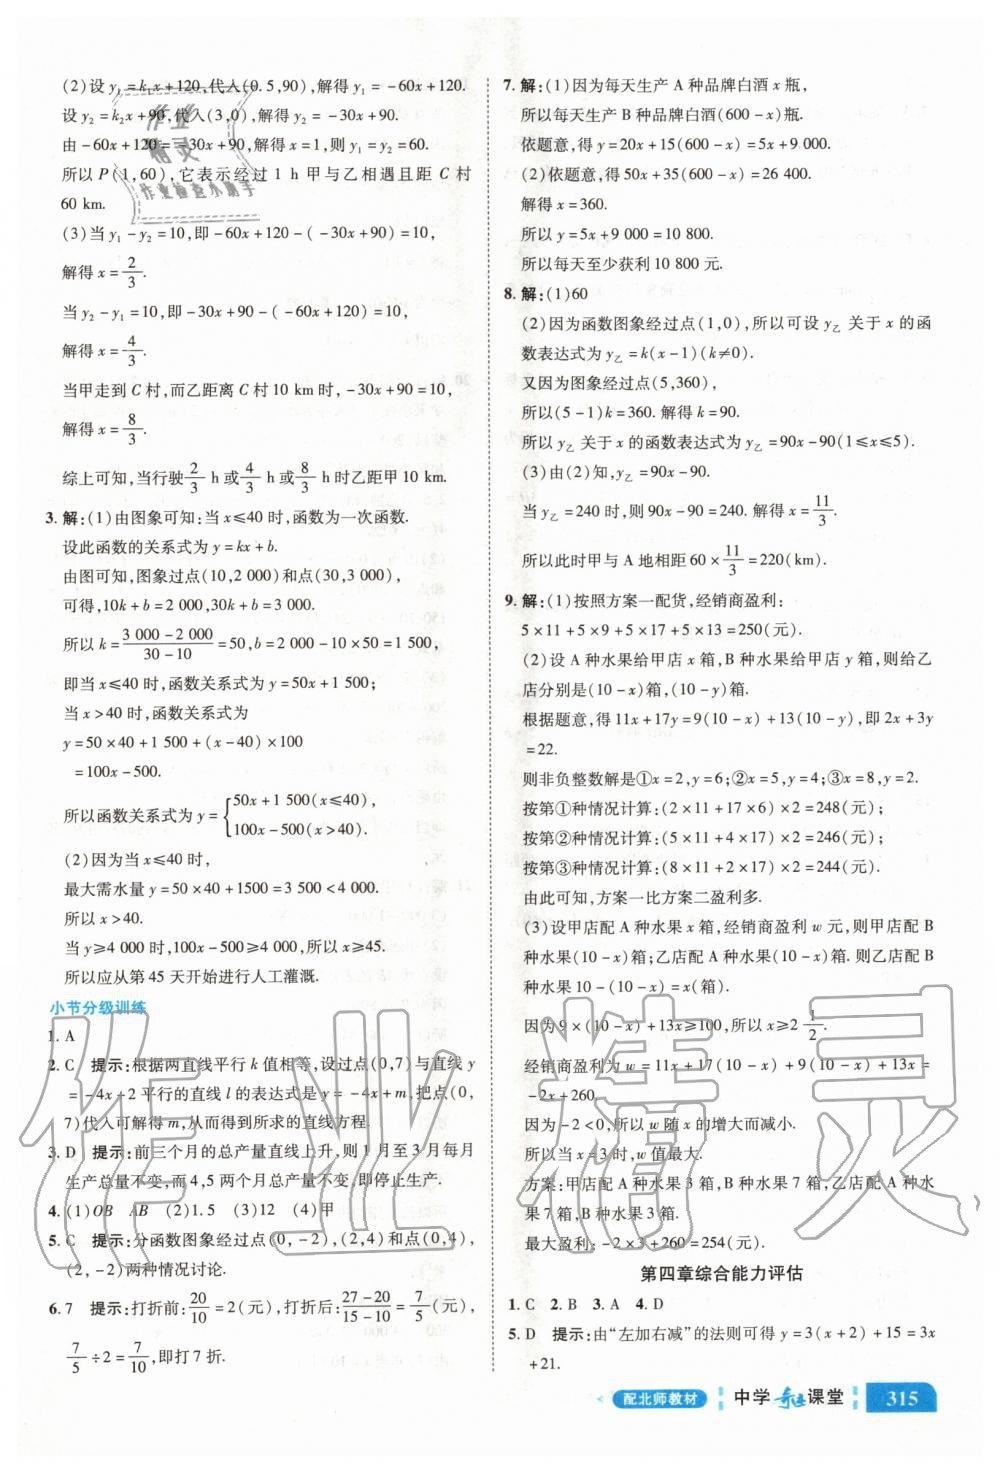 (2)设 y₁=k₁x+120,代入(0.5,90),解得 y₁=-60x+120.
设 y₂=k₂x+90,代入(3,0),解得 y₂=-30x+90.
由-60x+120=-30x+90,解得 x=1,则 y₁=y₂=60.
所以 P(1,60),它表示经过 1 h 甲与乙相遇且距 C 村
60 km.
(3)当 y₁-y₂=10,即-60x+120-(-30x+90)=10,
解得 x=2/3.
当 y₂-y₁=10,即-30x+90-(-60x+120)=10,
解得 x=4/3.
当甲走到 C 村,而乙距离 C 村 10 km 时,-30x+90=10,
解得 x=8/3.
综上可知,当行驶2/3 h 或4/3 h 或8/3 h 时乙距甲 10 km.
3.解:(1)由图象可知:当 x≤40 时,函数为一次函数.
设此函数的关系式为 y=kx+b.
由图可知,图象过点(10,2 000)和点(30,3 000),
可得,10k+b=2 000,30k+b=3 000,
所以 k=(3 000-2 000)/(30-10)=50,b=2 000-10×50=1 500,
即当 x≤40 时,函数关系式为 y=50x+1 500;
当 x>40 时,函数关系式为
y=50×40+1 500+(x-40)×100
=100x-500.
所以函数关系式为 y={50x+1 500(x≤40),
100x-500(x>40).
(2)因为当 x≤40 时,
最大需水量 y=50×40+1500=3 500<4 000.
所以 x>40.
当 y≥4 000 时,100x-500≥4 000,所以 x≥45.
所以应从第 45 天开始进行人工灌溉.
小节分级训练
1. A
2. C 提示:根据两直线平行 k 值相等,设过点(0,7)与直线 y
=-4x+2 平行的直线 l 的表达式是 y=-4x+m,把点(0,
7)代入可解得 m,从而得到所求的直线方程.
3. D 提示:前三个月的总产量直线上升,则 1 月至 3 月每月
生产总量不变,而 4,5 两个月总产量不变,即停止生产.
4. (1)OB AB (2)1.5 (3)12 (4)甲
5. C 提示:分函数图象经过点(0,-2),(2,4)和点(0,4),
(2,-2)两种情况讨论.
6. 7 提示:打折前:20/10=2(元),打折后:(27-20)/(15-10)=7/5(元),
7/5÷2=7/10,即打 7 折.
7.解:(1)因为每天生产 A 种品牌白酒 x 瓶,
所以每天生产 B 种品牌白酒(600-x)瓶.
依题意,得 y=20x+15(600-x)=5x+9 000.
(2)依题意,得 50x+35(600-x)=26 400.
解得 x=360.
所以 y=5x+9 000=10 800.
所以每天至少获利 10 800 元.
8.解:(1)60
(2)因为函数图象经过点(1,0),所以可设 y乙 关于 x 的函
数表达式为 y乙=k(x-1)(k≠0).
又因为图象经过点(5,360),
所以(5-1)k=360. 解得 k=90.
所以 y乙 关于 x 的函数表达式为 y乙=90x-90(1≤x≤5).
(3)由(2)知,y乙=90x-90.
当 y乙=240 时,则 90x-90=240. 解得 x=11/3.
所以此时甲与 A 地相距 60×11/3=220(km).
9.解:(1)按照方案一配货,经销商盈利:
5×11+5×9+5×17+5×13=250(元).
(2)设 A 种水果给甲店 x 箱,B 种水果给甲店 y 箱,则给乙
店分别是(10-x)箱,(10-y)箱.
根据题意,得 11x+17y=9(10-x)+13(10-y),即 2x+3y
=22.
则非负整数解是①x=2,y=6;②x=5,y=4;③x=8,y=2.
按第①种情况计算:(2×11+17×6)×2=248(元);
按第②种情况计算:(5×11+4×17)×2=246(元);
按第③种情况计算:(8×11+2×17)×2=244(元).
由此可知,方案一比方案二盈利多.
(3)设甲店配 A 种水果 x 箱,经销商盈利 w 元,则甲店配 B
种水果(10-x)箱;乙店配 A 种水果(10-x)箱. 则乙店配 B
种水果 10-(10-x)=x(箱).
因为 9×(10-x)+13x≥100,所以 x≥2 1/2.
经销商盈利为 w=11x+17(10-x)+9(10-x)+13x=
-2x+260.
因为-2<0,所以 w 随 x 的增大而减小.
所以当 x=3 时,w 值最大.
方案:甲店配 A 种水果 3 箱,B 种水果 7 箱,乙店配 A 种水
果 7 箱,B 种水果 3 箱.
最大盈利:-2×3+260=254(元).
第四章综合能力评估
1. C 2. B 3. A 4. D
5. D 提示:由“左加右减”的法则可得 y=3(x+2)+15=3x
+21.
配北师教材 中学奇迹课堂 315
作业精灵
作业检查小助手
作业精灵